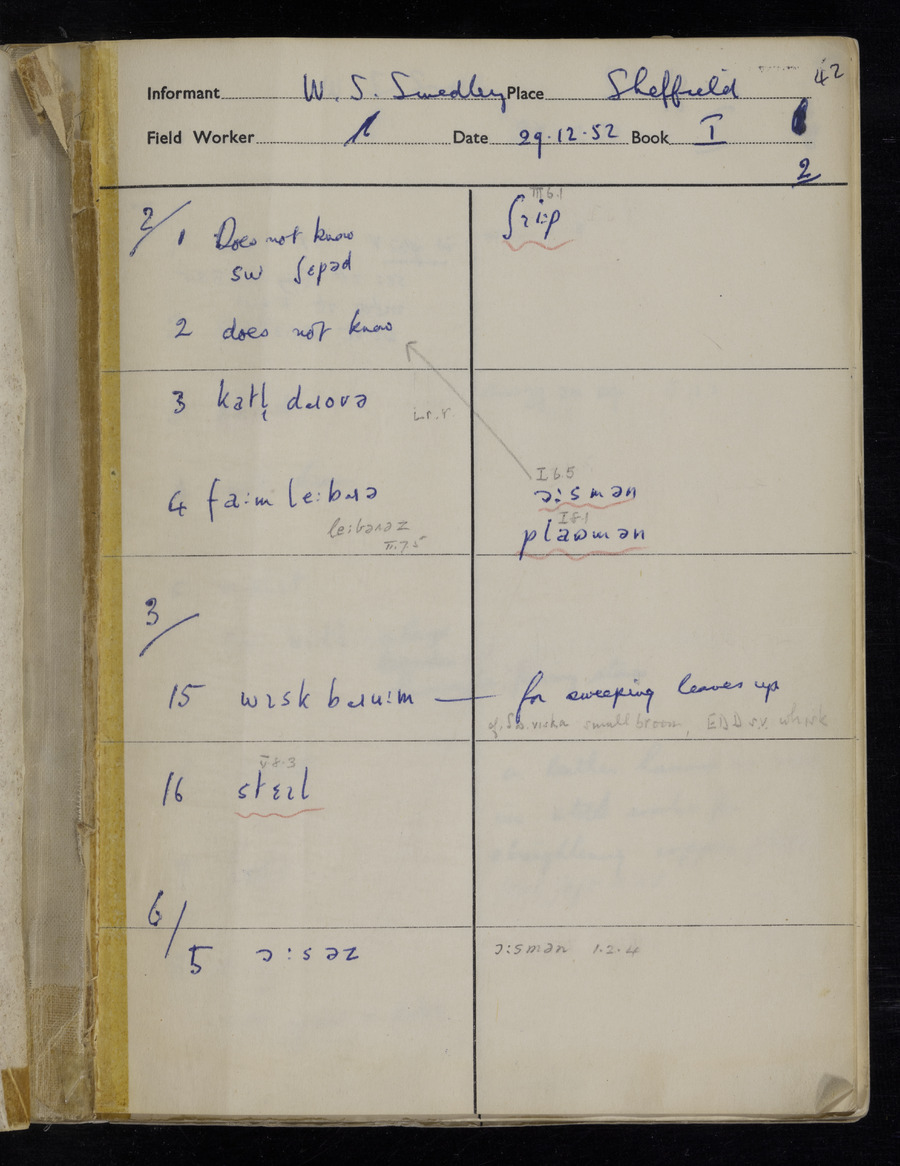 42
Informant W. S. Smedley Place Sheffield
Field Worker Date 29·12·52 Book I
2
2/
1 Does not know
sw ʃepəd
III 6.1
ʃɹi:p
2 does not know
3 katl̩ dɹovə
I.r.r.
4 fa:m le:bɹə
le:bərəz
II.7.5
I 6.5
ɔ:smən
I 8.1
plaωmən
3/
15 wɪsk bɹu:m — for sweeping leaves up
cf. Sw. viska small broom, EDD s.v. whisk
V.8.3
16 stεɪl
6/
5 ɔ:səz
ɔ:smən 1.2.4